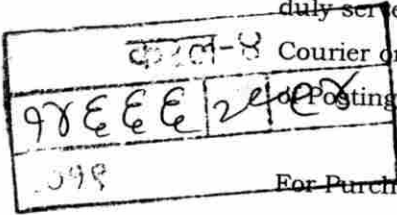 duly serve
करल-४ Courier or
१४६६६ of Posting
२०१९
For Purch